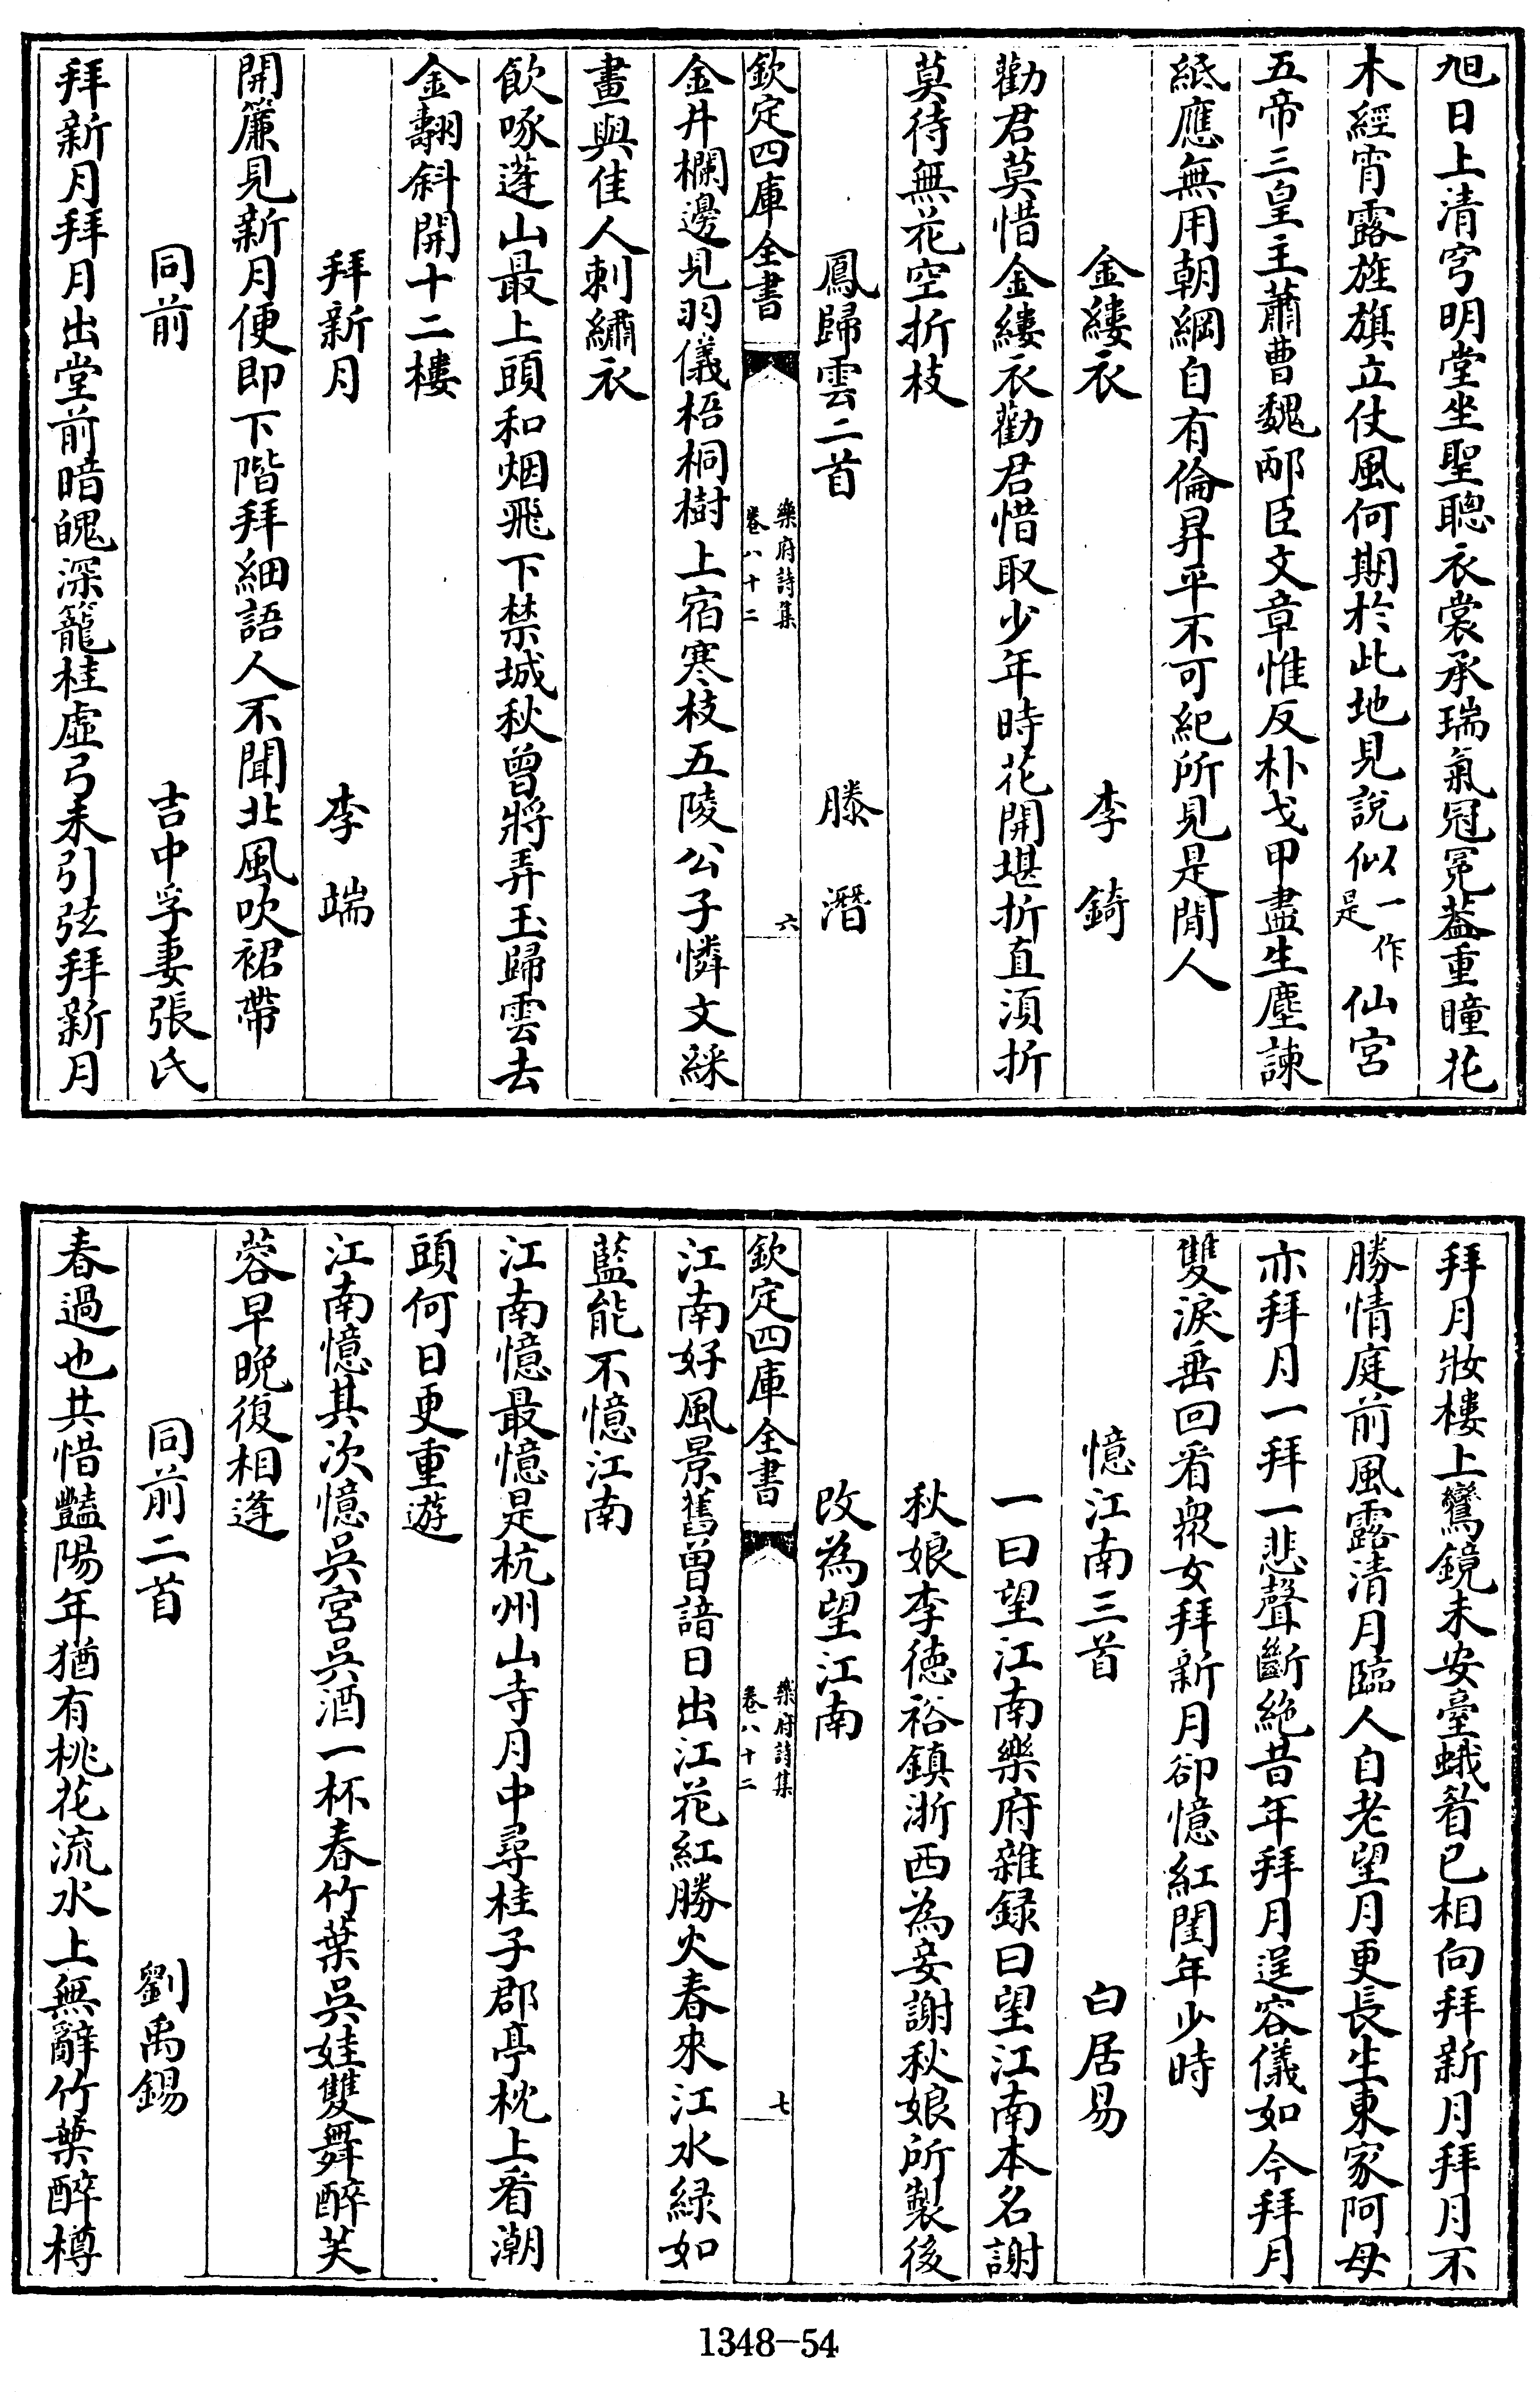 旭日上清穹明堂坐聖聰衣裳承瑞氣冠冕葢重瞳花
木經宵露旌旗立仗風何期於此地見說似一作是仙宮
五帝三皇主蕭曹魏邴臣文章惟反朴戈甲盡生塵諫
紙應無用朝綱自有倫昇平不可紀所見是閒人
金縷衣 李錡
勸君莫惜金縷衣勸君惜取少年時花開堪折直須折
莫待無花空折枝
鳳歸雲二首 滕潛
欽定四庫全書 樂府詩集 卷八十二 六
金井欄邊見羽儀梧桐樹上宿寒枝五陵公子憐文綵
畫與佳人刺繡衣
飲啄蓬山最上頭和烟飛下禁城秋曾將弄玉歸雲去
金翿斜開十二樓
拜新月 李端
開簾見新月便即下階拜細語人不聞北風吹裙帶
同前 吉中孚妻張氏
拜新月拜月出堂前暗魄深籠桂虛弓未引弦拜新月
拜月妝樓上鸞鏡未安臺蛾眉已相向拜新月拜月不
勝情庭前風露清月臨人自老望月更長生東家阿母
亦拜月一拜一悲聲斷絶昔年拜月逞容儀如今拜月
雙淚垂回看衆女拜新月卻憶紅閨年少時
憶江南三首 白居易
一曰望江南樂府雜録曰望江南本名謝
秋娘李德裕鎮浙西為妾謝秋娘所製後
改為望江南
欽定四庫全書 樂府詩集 卷八十二 七
江南好風景舊曾諳日出江花紅勝火春來江水緑如
藍能不憶江南
江南憶最憶是杭州山寺月中尋桂子郡亭枕上看潮
頭何日更重遊
江南憶其次憶吳宮吳酒一杯春竹葉吳娃雙舞醉芙
蓉早晚復相逢
同前二首 劉禹錫
春過也共惜豔陽年猶有桃花流水上無辭竹葉醉樽
1348-54